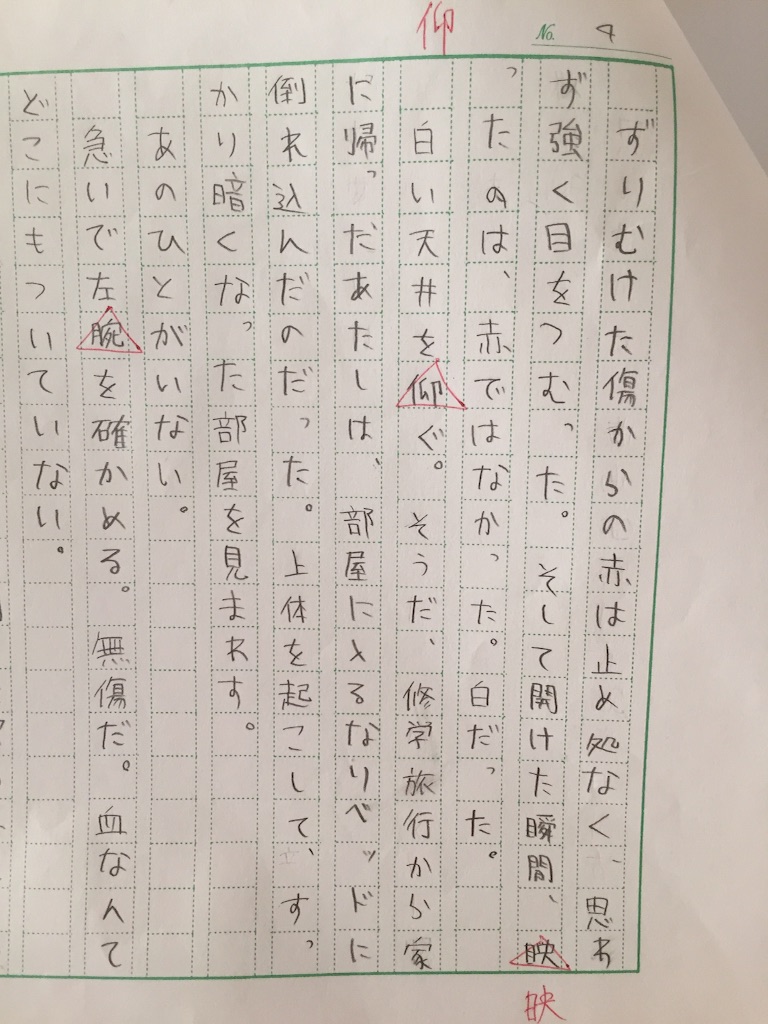 No. 4
仰
ずりむけた傷からの赤は止め処なく、思わ
ず強く目をつむった。そして開けた瞬間、映
映
ったのは、赤ではなかった。白だった。
白い天井を仰ぐ。そうだ、修学旅行から家
に帰っだあたしは、部屋に入るなりベッドに
倒れ込んだのだった。上体を起こして、すっ
かり暗くなった部屋を見まわす。
あのひとがいない。
急いで左腕を確かめる。無傷だ。血なんて
どこにもついていない。